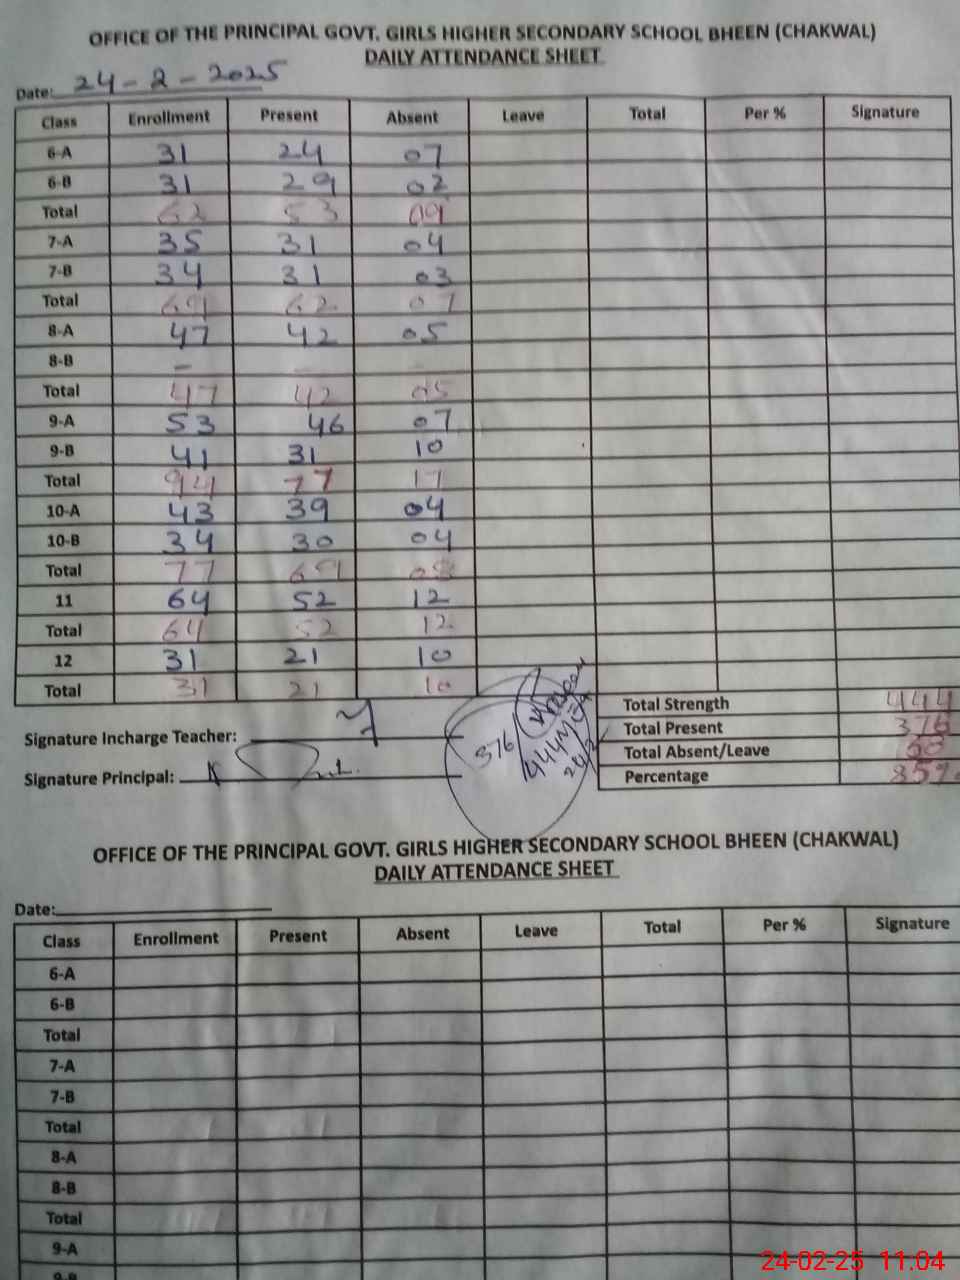 OFFICE OF THE PRINCIPAL GOVT. GIRLS HIGHER SECONDARY SCHOOL BHEEN (CHAKWAL)
DAILY ATTENDANCE SHEET
Date: 24-2-2025
Class Enrollment Present Absent Leave Total Per % Signature
6-A 31 24 07
6-B 31 29 02
Total 62 53 09
7-A 35 31 04
7-B 34 31 03
Total 69 62 07
8-A 47 42 05
8-B -
Total 47 42 05
9-A 53 46 07
9-B 41 31 10
Total 94 77 17
10-A 43 39 04
10-B 34 30 04
Total 77 69 08
11 64 52 12
Total 64 52 12
12 31 21 10
Total 31 21 10
Total Strength 444
Signature Incharge Teacher: Total Present 376
Total Absent/Leave 68
Signature Principal: Percentage 85%
376
444
24/2
OFFICE OF THE PRINCIPAL GOVT. GIRLS HIGHER SECONDARY SCHOOL BHEEN (CHAKWAL)
DAILY ATTENDANCE SHEET
Date:
Class Enrollment Present Absent Leave Total Per % Signature
6-A
6-B
Total
7-A
7-B
Total
8-A
8-B
Total
9-A
9-B
24-02-25 11:04